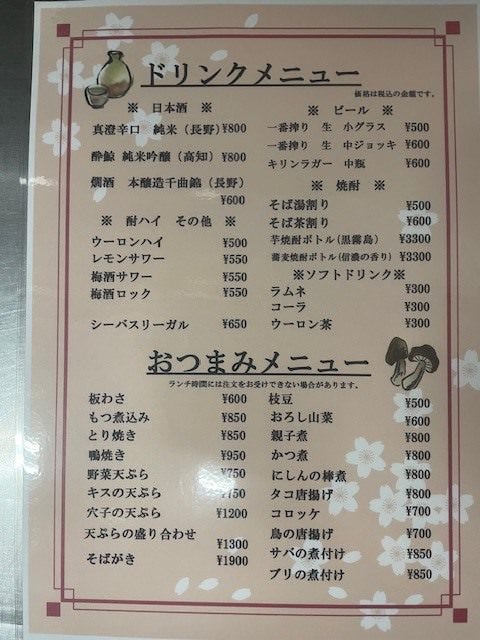 ドリンクメニュー
価格は税込の金額です。
※ 日本酒 ※
真澄辛口 純米（長野） ¥800
酔鯨 純米吟醸（高知） ¥800
燗酒 本醸造千曲錦（長野）
¥600
※ 酎ハイ その他 ※
ウーロンハイ ¥500
レモンサワー ¥550
梅酒サワー ¥550
梅酒ロック ¥550
シーバスリーガル ¥650
※ ビール ※
一番搾り 生 小グラス ¥500
一番搾り 生 中ジョッキ ¥600
キリンラガー 中瓶 ¥600
※ 焼酎 ※
そば湯割り ¥500
そば茶割り ¥600
芋焼酎ボトル（黒霧島） ¥3300
蕎麦焼酎ボトル（信濃の香り） ¥3300
※ソフトドリンク※
ラムネ ¥300
コーラ ¥300
ウーロン茶 ¥300
おつまみメニュー
ランチ時間には注文をお受けできない場合があります。
板わさ ¥600
もつ煮込み ¥850
とり焼き ¥850
鴨焼き ¥950
野菜天ぷら ¥750
キスの天ぷら ¥750
穴子の天ぷら ¥1200
天ぷらの盛り合わせ
¥1300
そばがき ¥1900
枝豆 ¥500
おろし山菜 ¥600
親子煮 ¥800
かつ煮 ¥800
にしんの棒煮 ¥800
タコ唐揚げ ¥800
コロッケ ¥700
鳥の唐揚げ ¥700
サバの煮付け ¥850
ブリの煮付け ¥850